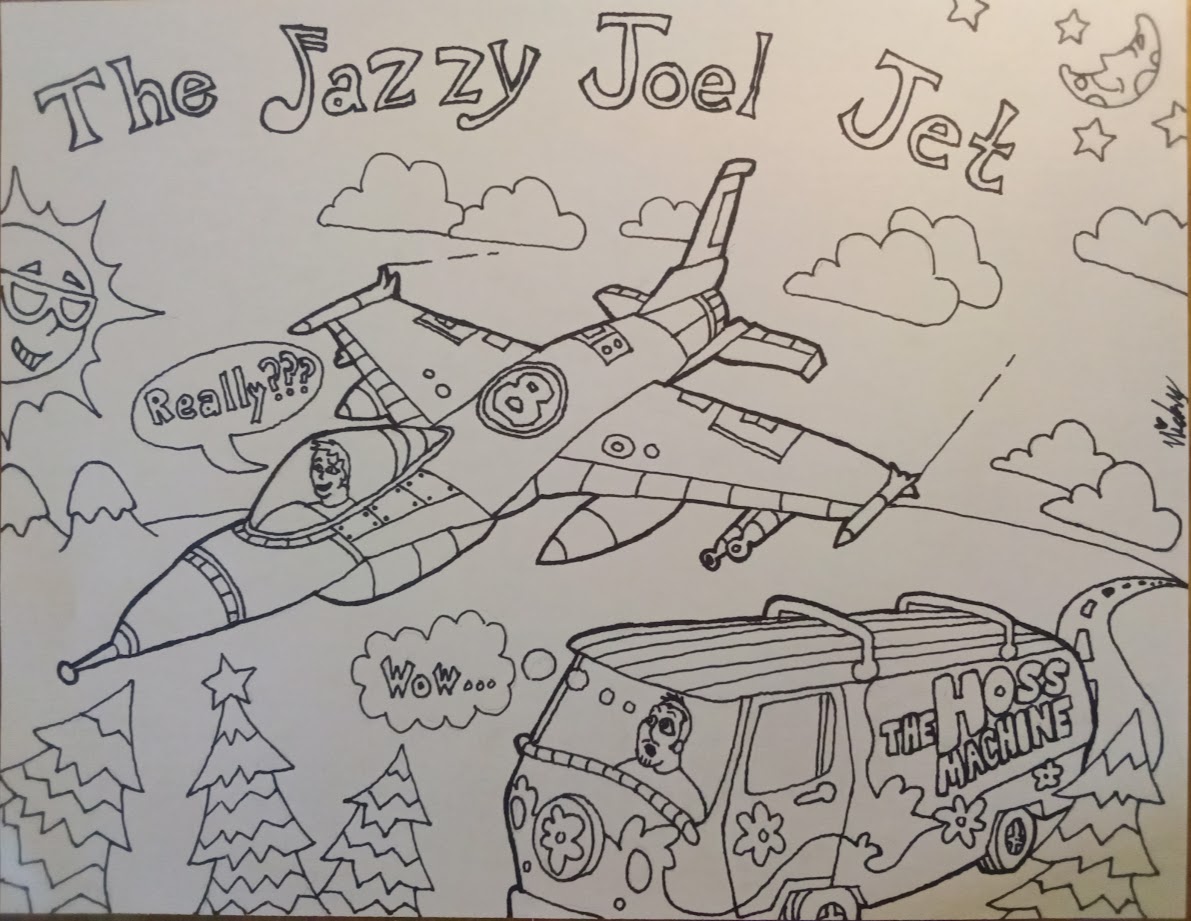 The Jazzy Joel Jet
Really???
8
Wow...
THE HOSS
MACHINE